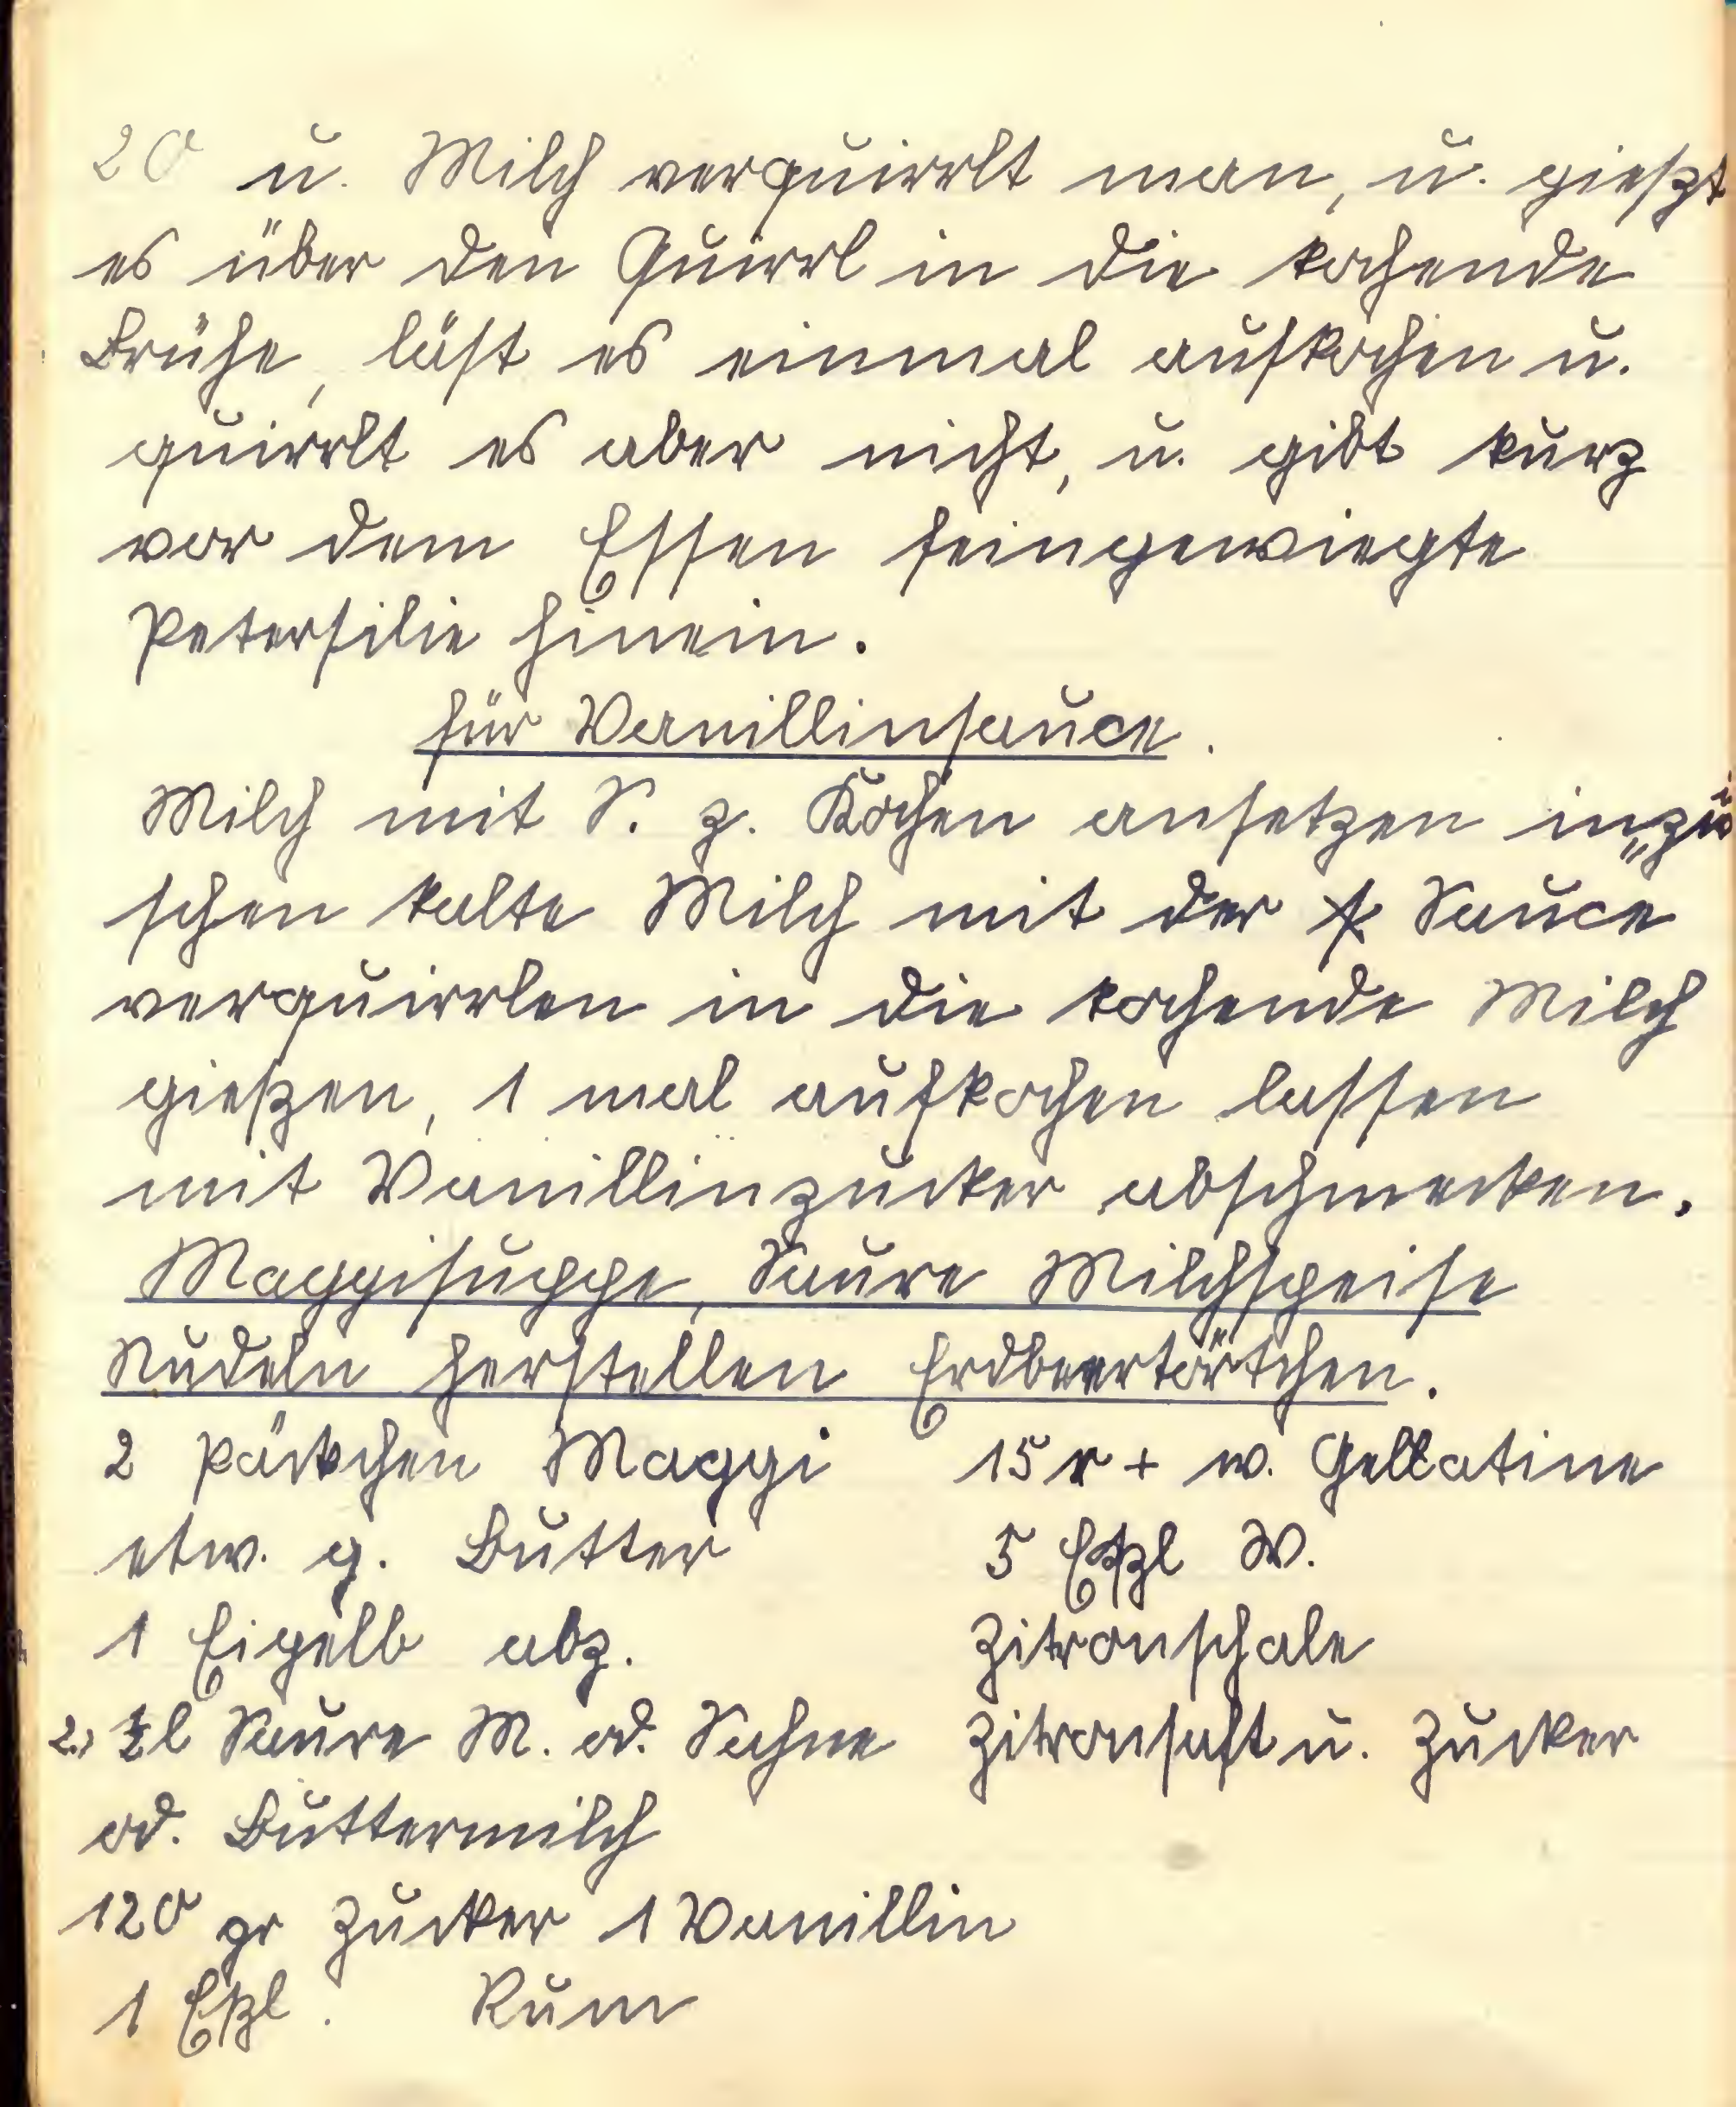 20 u. Milch verquirrlt man, u. gießt
es über den Quirrl in die kochende
Brühe, läst es einmal aufkochen u.
quirrlt es aber nicht, u. gibt kurz
vor dem Essen feingewiegte
Petersilie hinein.
für Vanillinsauce.
Milch mit S. z. Kochen ansetzen inzwi
schen kalte Milch mit der Sauce
verquirrlen in die kochende Milch
gießen, 1 mal aufkochen lassen
mit Vanillinzucker abschmecken.
Maggisuppe, Saure Milchspeise
Nudeln herstellen Erdbeertörtchen.
2 Päckchen Maggi
etw. g. Butter
1 Eigelb abz.
2., ½ l Saure M. od. Sahne
od. Buttermilch
120 gr Zucker 1 Vanillin
1 Eßl. Rum
15 r + w. Gellatine
5 Eßl W.
Zitronschale
Zitronsaft u. Zucker